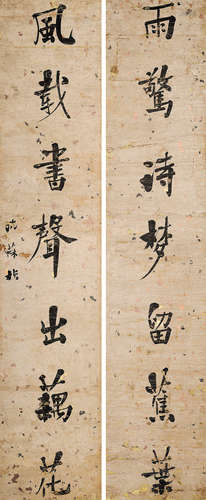 雨驚诗梦留蕉葉
風載書聲出藕花